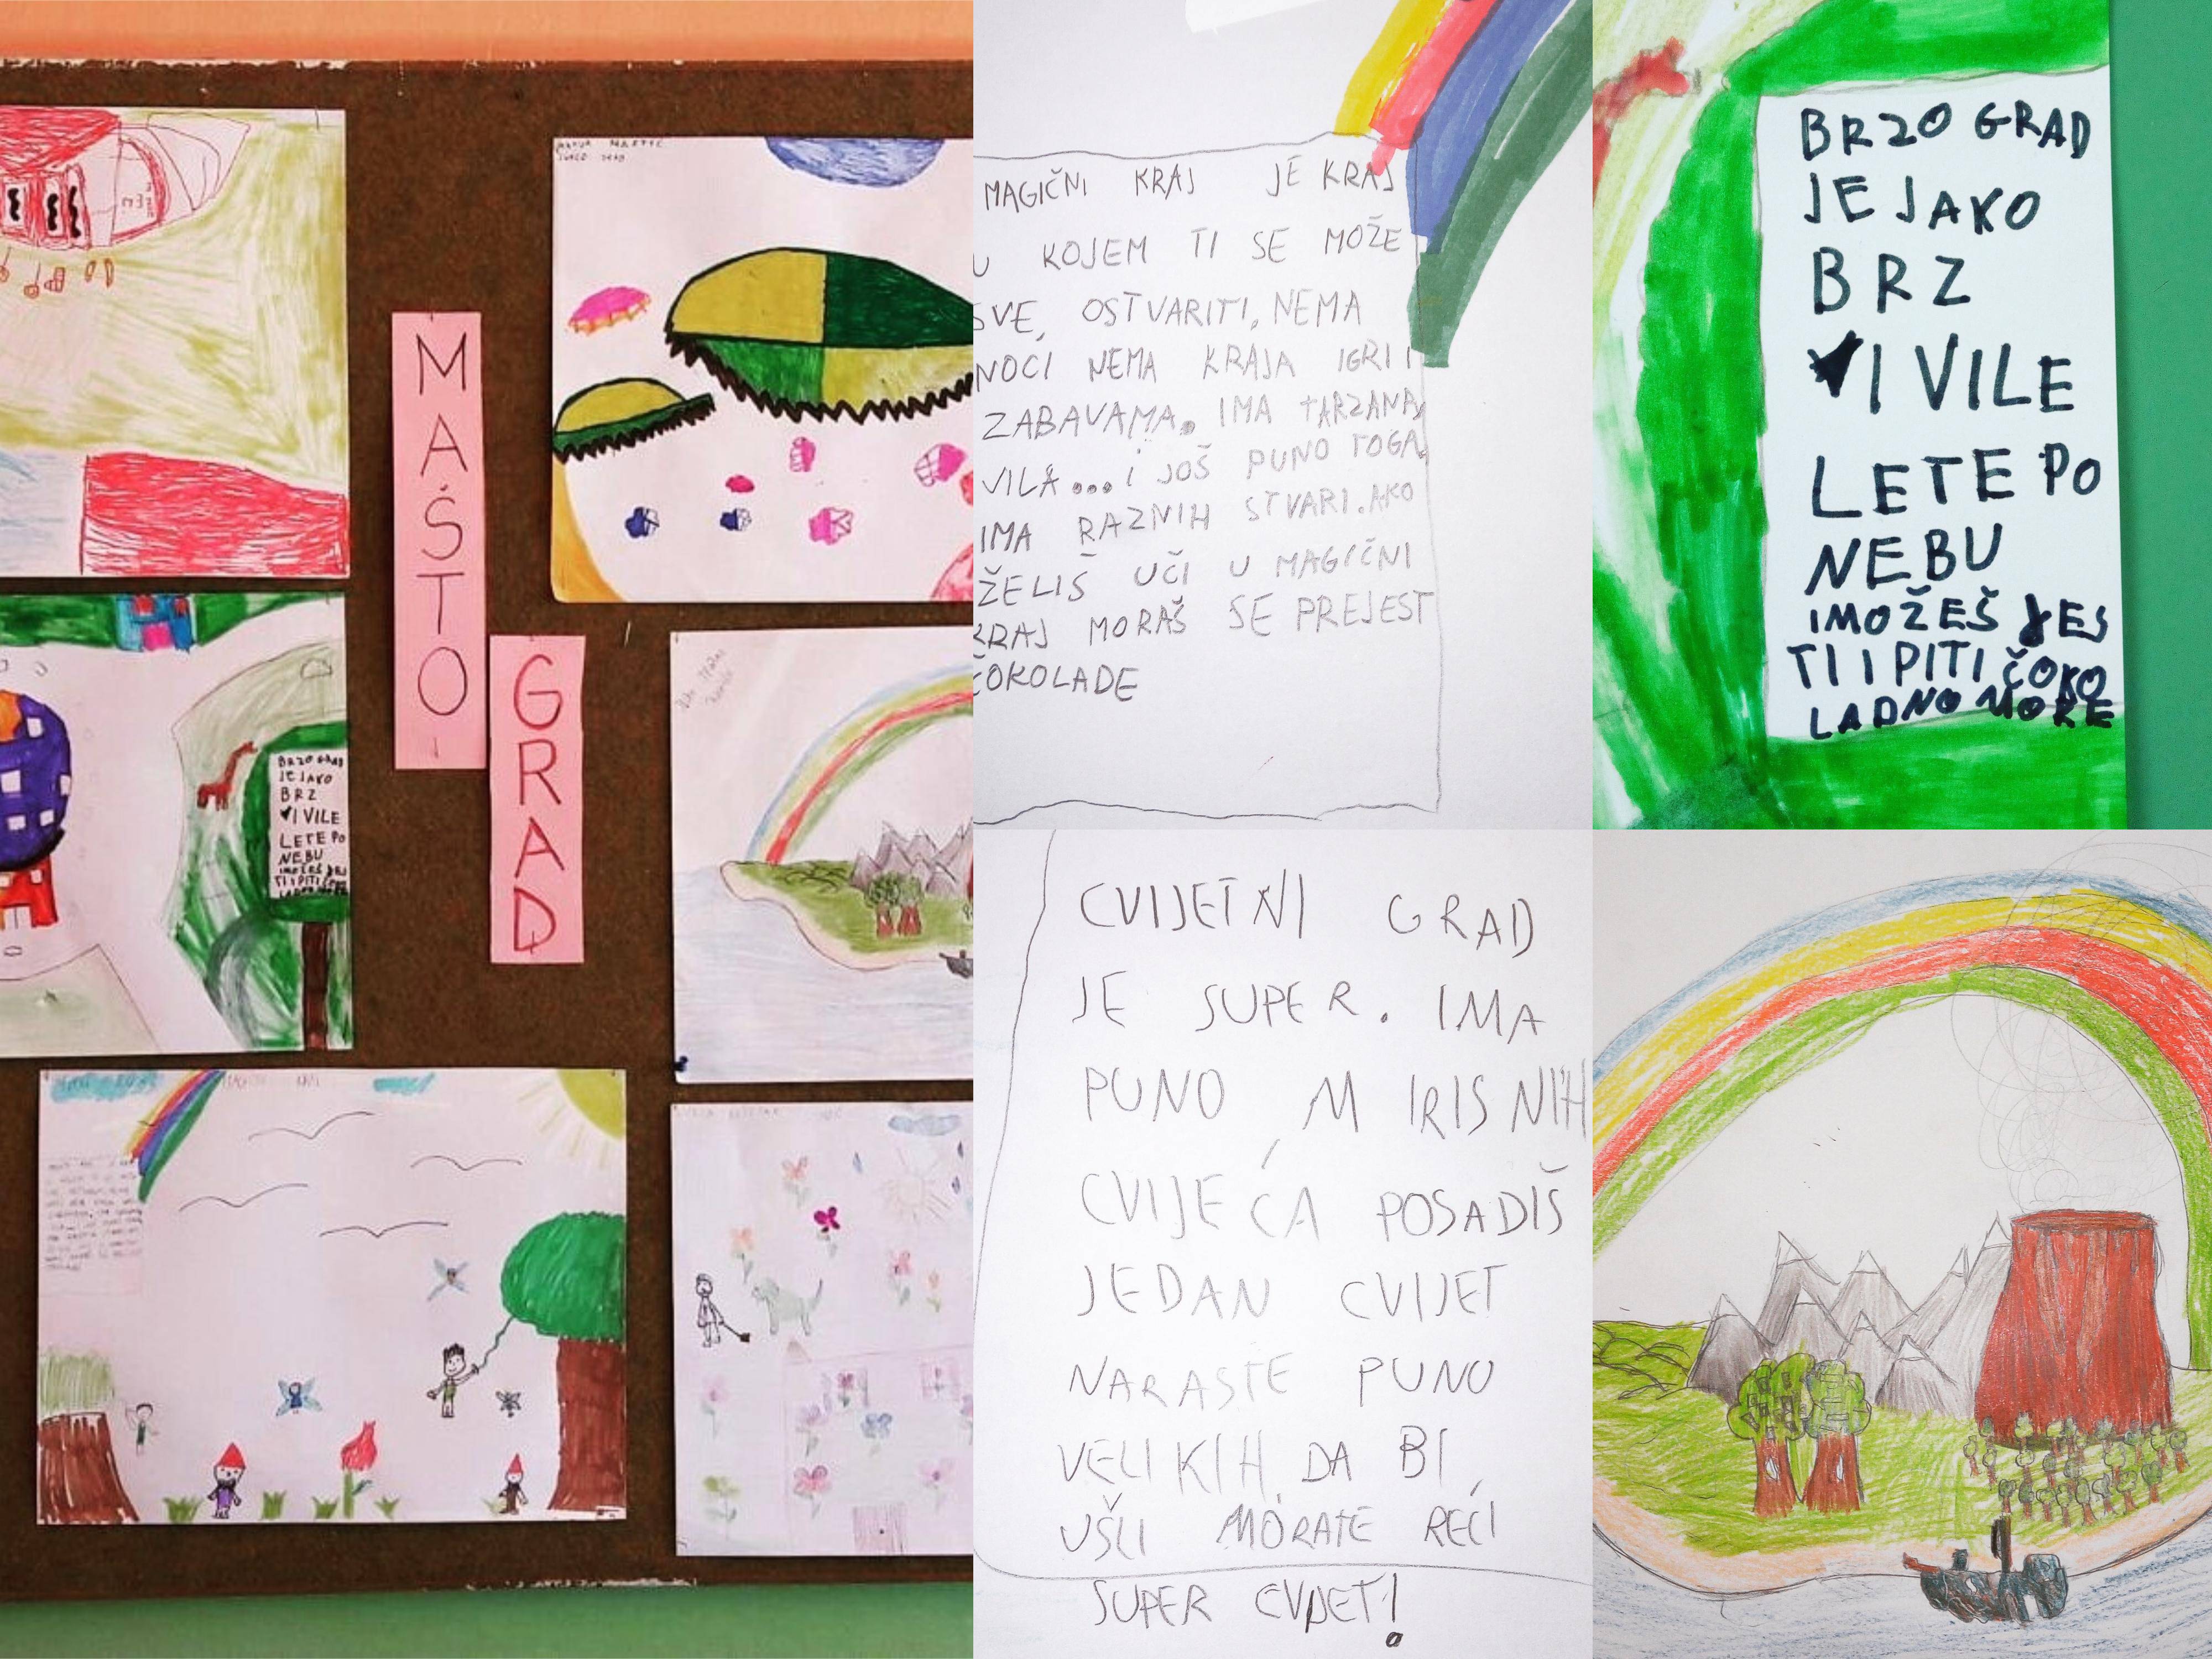 MAŠTO
GRAD
BRZO GRAD
JE JAKO
BRZ
I VILE
LETE PO
NEBU
MAGIČNI KRAJ JE KRAJ
U KOJEM TI SE MOŽE
SVE, OSTVARITI, NEMA
NOĆI NEMA KRAJA IGRI I
ZABAVAMA. IMA TARZANA,
VILA...I JOŠ PUNO TOGA
IMA RAZNIH STVARI. AKO
ŽELIŠ UČI U MAGIČNI
KRAJ MORAŠ SE PREJEST
ČOKOLADE
BRZO GRAD
JE JAKO
BRZ
I VILE
LETE PO
NEBU
I MOŽEŠ JES
TI I PITI ČOKO
LADNO MORE
CVIJETNI GRAD
JE SUPER. IMA
PUNO MIRISNIH
CVIJEĆA POSADIŠ
JEDAN CVIJET
NARASTE PUNO
VELIKIH, DA BI
UŠLI MORATE REĆI
SUPER CVIJET!